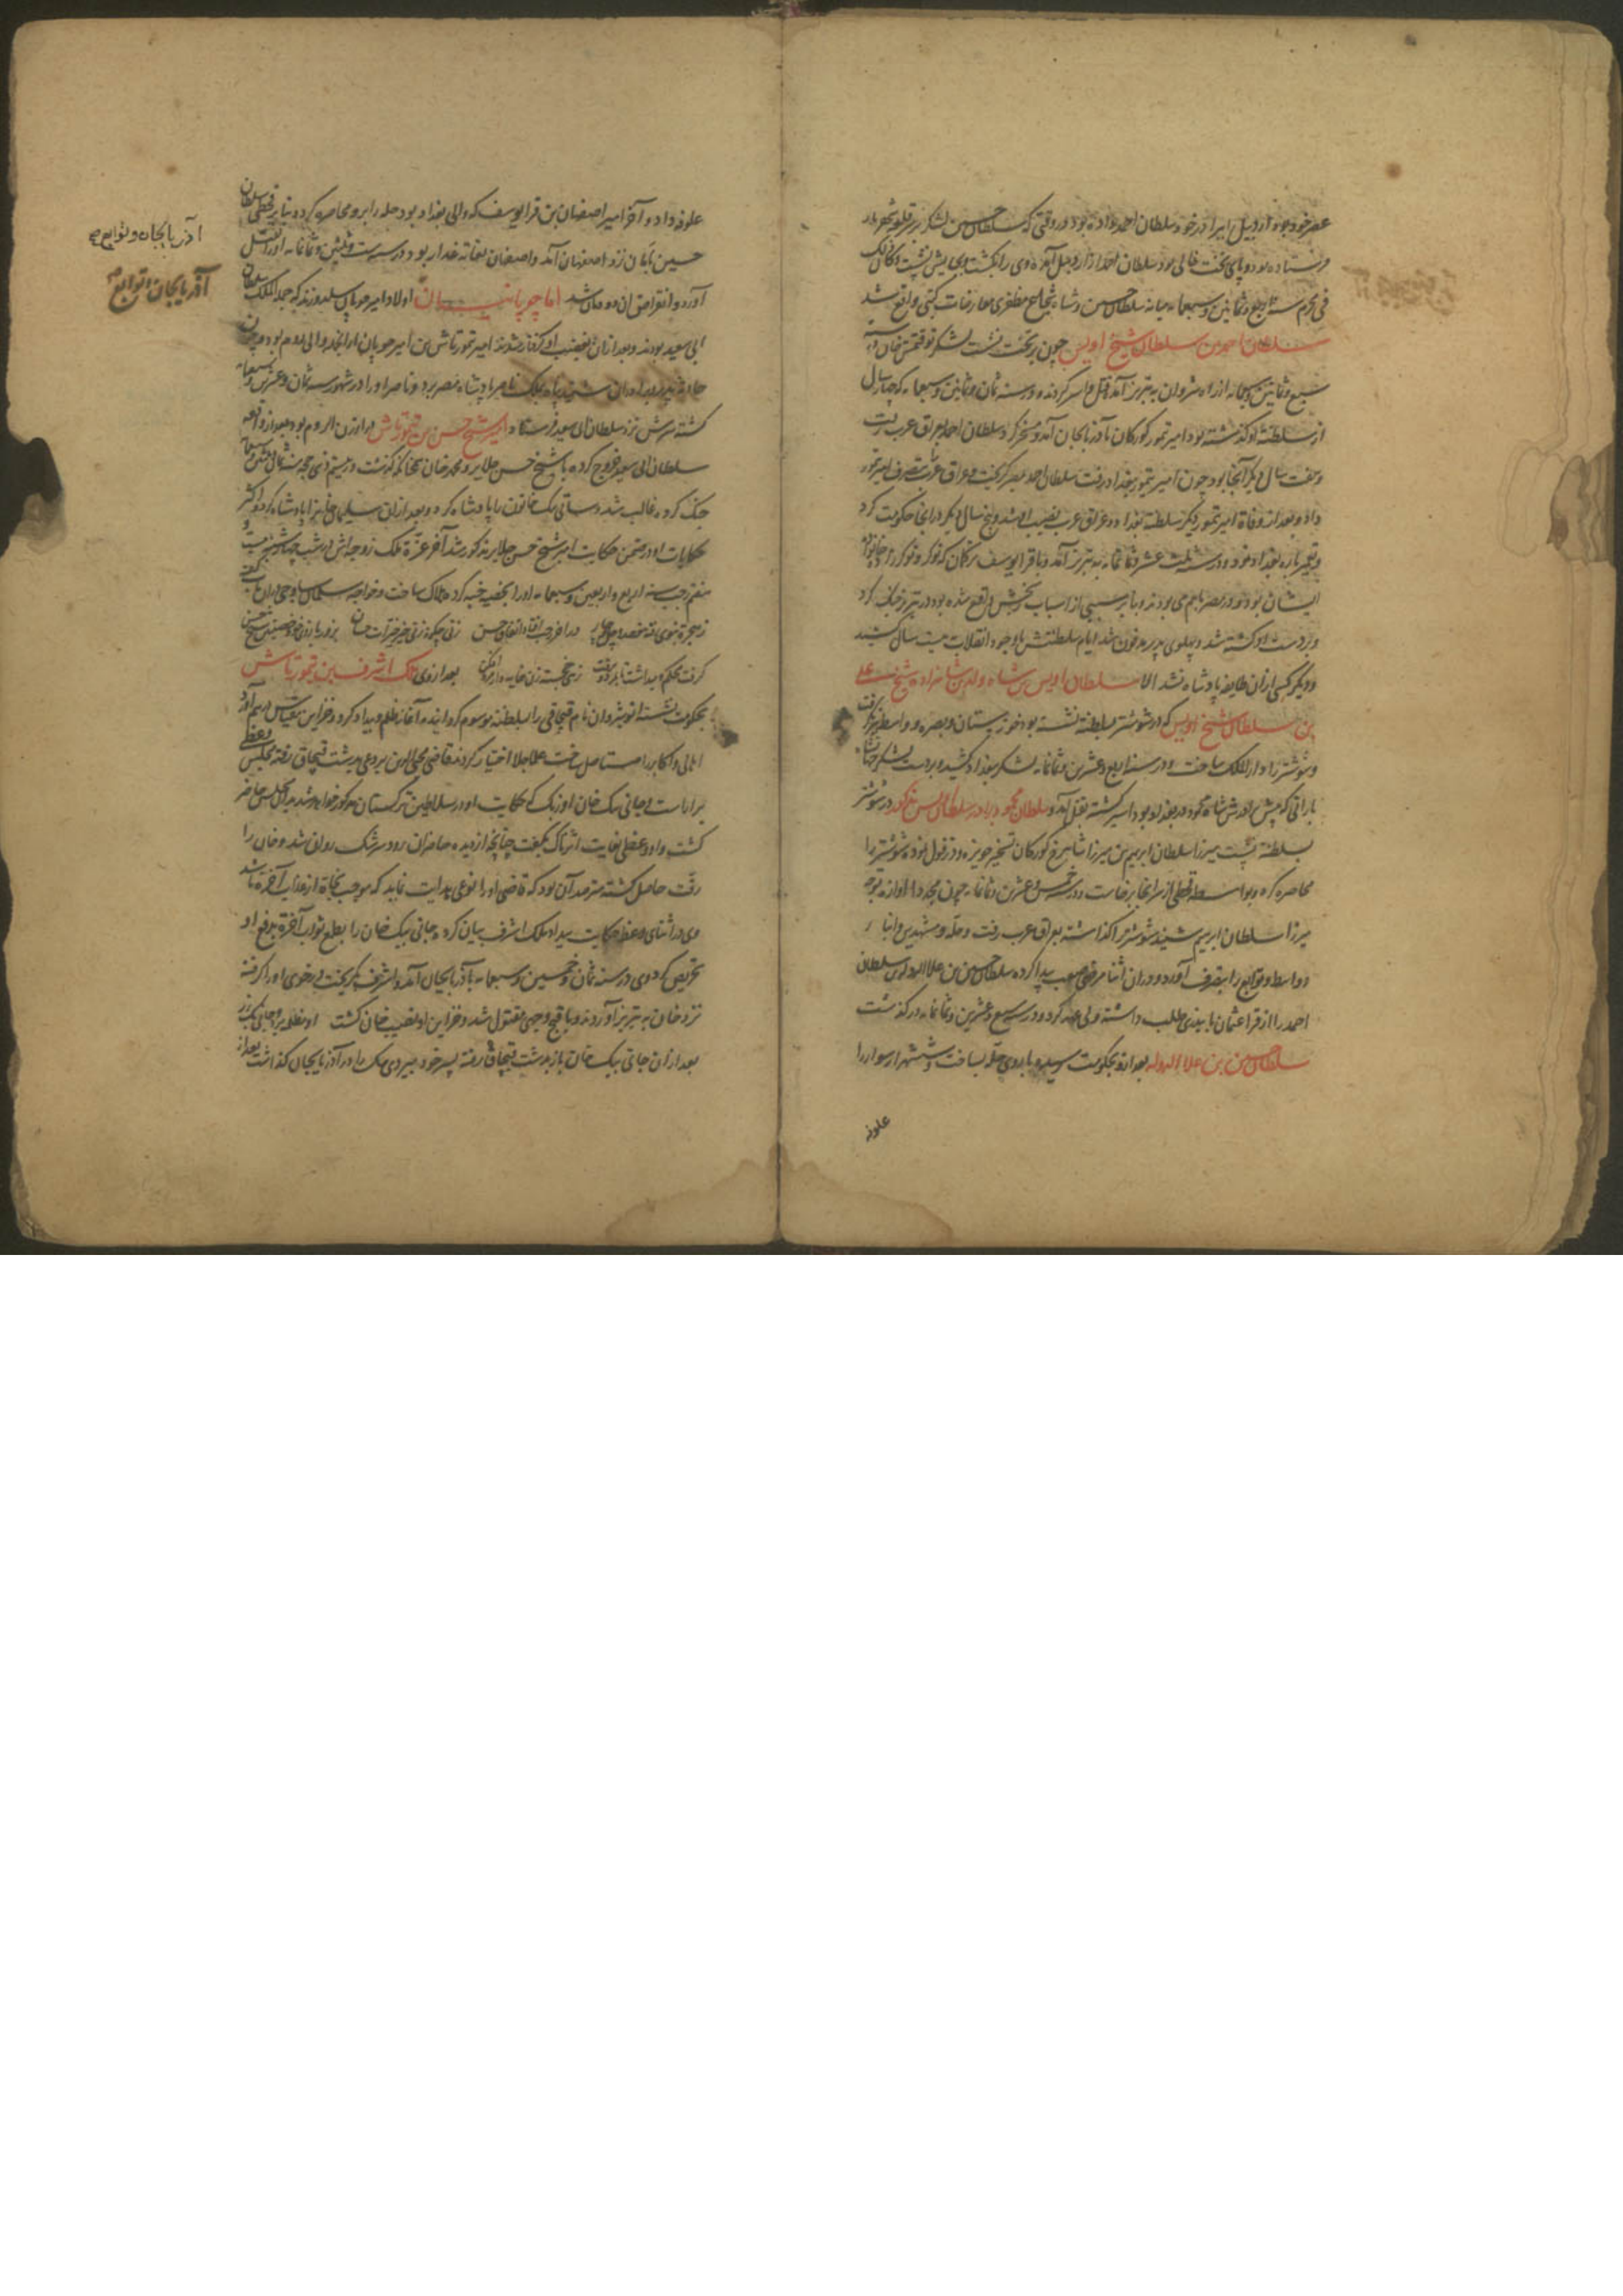 عصر خود بود اردبیل را برادر خود سلطان احمد داده بود در وقتی که سلطان حسین لشکر بر سر قلعه شهریار
فرستاده بود و پای تخت خالی بود سلطان احمد از اردبیل آمده وی را بکشت و بجایش نشست و کان ذلک
فی محرم سنه اربع و ثمانین و سبعمایه میانه سلطان حسین و شاه شجاع مظفری معارضات کتبی واقع شد
سلطان احمد بن سلطان شیخ اویس چون بر تخت نشست لشکر توقتمش خان در سنه
سبع و ثمانین و سبعمایه از راه شروان به تبریز آمده قتل و اسر کردند و در سنه ثمان و ثمانین و سبعمایه که چهار سال
از سلطنت او گذشته بود امیر تیمور کورکان بآذربایجان آمد و مسخر کرد سلطان احمد بعراق عرب رفت
و هفت سال دیگر آنجا بود چون امیر تیمور ببغداد رفت سلطان احمد بمصر گریخت و عراق عرب بتصرف امیر تیمور
داد و بعد از وفات امیر تیمور دیگر سلطنت بغداد و عراق عرب نصیب او شد و پنج سال دیگر در انجا حکومت کرد
و تعمیر باره بغداد نمود و در سنه ثلث عشر و ثمانمایه به تبریز آمد و با قرا یوسف ترکمان که نوکر و نوکرزاده خانواده
ایشان بود و در مصر باهم می بودند و بنابر سببی از اسباب رنجش واقع شده بود در تبریز جنگ کرد
و بر دست او کشته شد و پهلوی پدر مدفون شد ایام سلطنتش با وجود انقلابات بیست سال کشید
و دیگر کسی از ان طایفه پادشاه نشد الا سلطان اویس بن شاه ولد بن شاهزاده شیخ علی
بن سلطان شیخ اویس که در شوشتر بسلطنت نشسته بود خوزستان و بصره و واسط نیز گرفت
و شوشتر را دار الملک ساخت و در سنه اربع و عشرین و ثمانمایه لشکر ببغداد کشید و بر دست لشکر
بارانی که پیش برادرش شاه محمود در بغداد بود اسیر گشته بقتل آمد و سلطان محمود برادر سلطان اویس مذکور در شوشتر
بسلطنت نشست میرزا سلطان ابراهیم بن میرزا شاهرخ کورکان تسخیر حویزه و دزفول نموده شوشتر را
محاصره کرد و بواسطه قحطی از سر انجا برخاست و در سنه خمس و عشرین و ثمانمایه چون مجددا آوازه توجه
میرزا سلطان ابراهیم شنید شوشتر را گذاشته بعراق عرب رفت و حله و مشهدین و انبار
و واسط و توابع را بتصرف آورد و در ان اثنا مرضی صعب پیدا کرده سلطان حسین بن علاء الدوله بن سلطان
احمد را از قرا عثمان بایندری طلب داشته ولی عهد کرد و در سنه سبع و عشرین و ثمانمایه درگذشت
سلطان حسین بن علاء الدوله بعد از و بحکومت رسید و باروی حله بساخت و شش هزار سوار را
علوفه
علوفه داد و آخر امیر اصفهان بن قرا یوسف که والی بغداد بود حله را برو محاصره کرد و بنابر قحطی سلطان
حسین بامان نزد اصفهان آمد و اصفهان بغایت غدار بود و در سنه ست و ثلثین و ثمانمایه او را بقتل
آورد و انقراض ان دودمان شد اما چوپانیان اولاد امیر چوپان سلدوزند که جدا الملک سلطان
ابی سعید بودند و بعد از ان بغضب او گرفتار شدند امیر تیمورتاش بن امیر چوپان از انجمله والی روم بود و چون
حادثه پدر و برادران شنید پناه بملک ناصر پادشاه مصر برد و ناصر او را در شهور سنه ثمان و عشرین و سبعمایه
کشته سرش نزد سلطان ابی سعید فرستاد امیر شیخ حسن بن تیمورتاش در ارزن الروم بود بعد از واقعه
سلطان ابی سعید خروج کرده با شیخ حسن جلایر و محمد خان چنانکه گذشت در بیستم ذی حجه سنه ثمان و ثلثین و سبعمایه
جنگ کرده غالب شد و ساتی بیک خاتون را پادشاه کرد و بعد از ان سلیمان خان را پادشاه کرد و اکثر
حکایات او در ضمن حکایت امیر شیخ حسن جلایر مذکور شد آخر عزت ملک زوجه اش در شب چهارشنبه بیست و
هفتم رجب سنه اربع و اربعین و سبعمایه او را بخفیه خبه کرده هلاک ساخت و خواجه سلمان ساوجی در ان باب گوید
ز هجرت نبوی رفته هفصد و چل و چار در آخر رجب افتاد اتفاق حسن زنی چگونه زنی خیر خیرات حسان بزور بازوی خود خصیتین شیخ حسن
گرفت محکم و میداشت تا بمرد و برفت زهی خجسته زن خایه دار مرد افکن بعد از وی ملک اشرف بن تیمورتاش
بحکومت نشسته انوشروان نام قبچاقی را بسلطنت موسوم گردانید و آغاز ظلم و بیداد کرد و خزاین بیقیاس بهم آورد
اهالی و اکابر را مستاصل ساخت علما جلا اختیار کردند قاضی محی الدین بردعی بدشت قبچاق رفته مجلس وعظ
براراست و جانی بیک خان اوزبک که حکایت او در سلاطین ترکستان مذکور خواهد شد بدان مجلس حاضر
گشت و او وعظی بغایت اثرناک بگفت چنانچه از دیده حاضران رود سرشک روان شد و خان را
رقت حاصل گشته مترصد آن بود که قاضی او را نوعی هدایت نماید که موجب نجات از عذاب آخرت باشد
وی در اثنای وعظ حکایت بیداد ملک اشرف بیان کرده جانی بیک خان را بطمع ثواب آخرت بدفع او
تحریص کرد وی در سنه ثمان و خمسین و سبعمایه بآذربایجان آمد و اشرف بگریخت در خوی او را گرفته
نزد خان به تبریز آوردند و باقبح وجهی مقتول شد و خزاین او نصیب خان گشت او مظلمه برد و جانی بیک زر
بعد از ان جانی بیک خان باز بدشت قبچاق رفته پسر خود بیردی بیک را در آذربایجان گذاشت بعد از
آذربایجان و توابع
آذربایجان و توابع